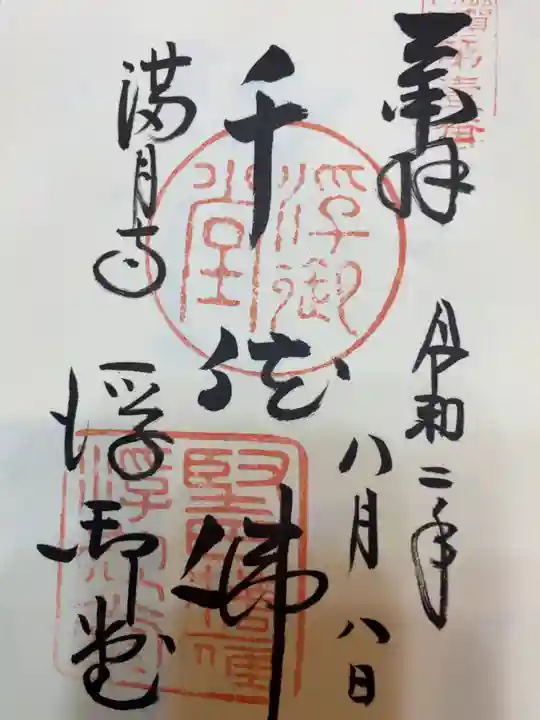 奉拝
令和二年
八月八日
千体佛
浮御堂
満月寺
浮御堂